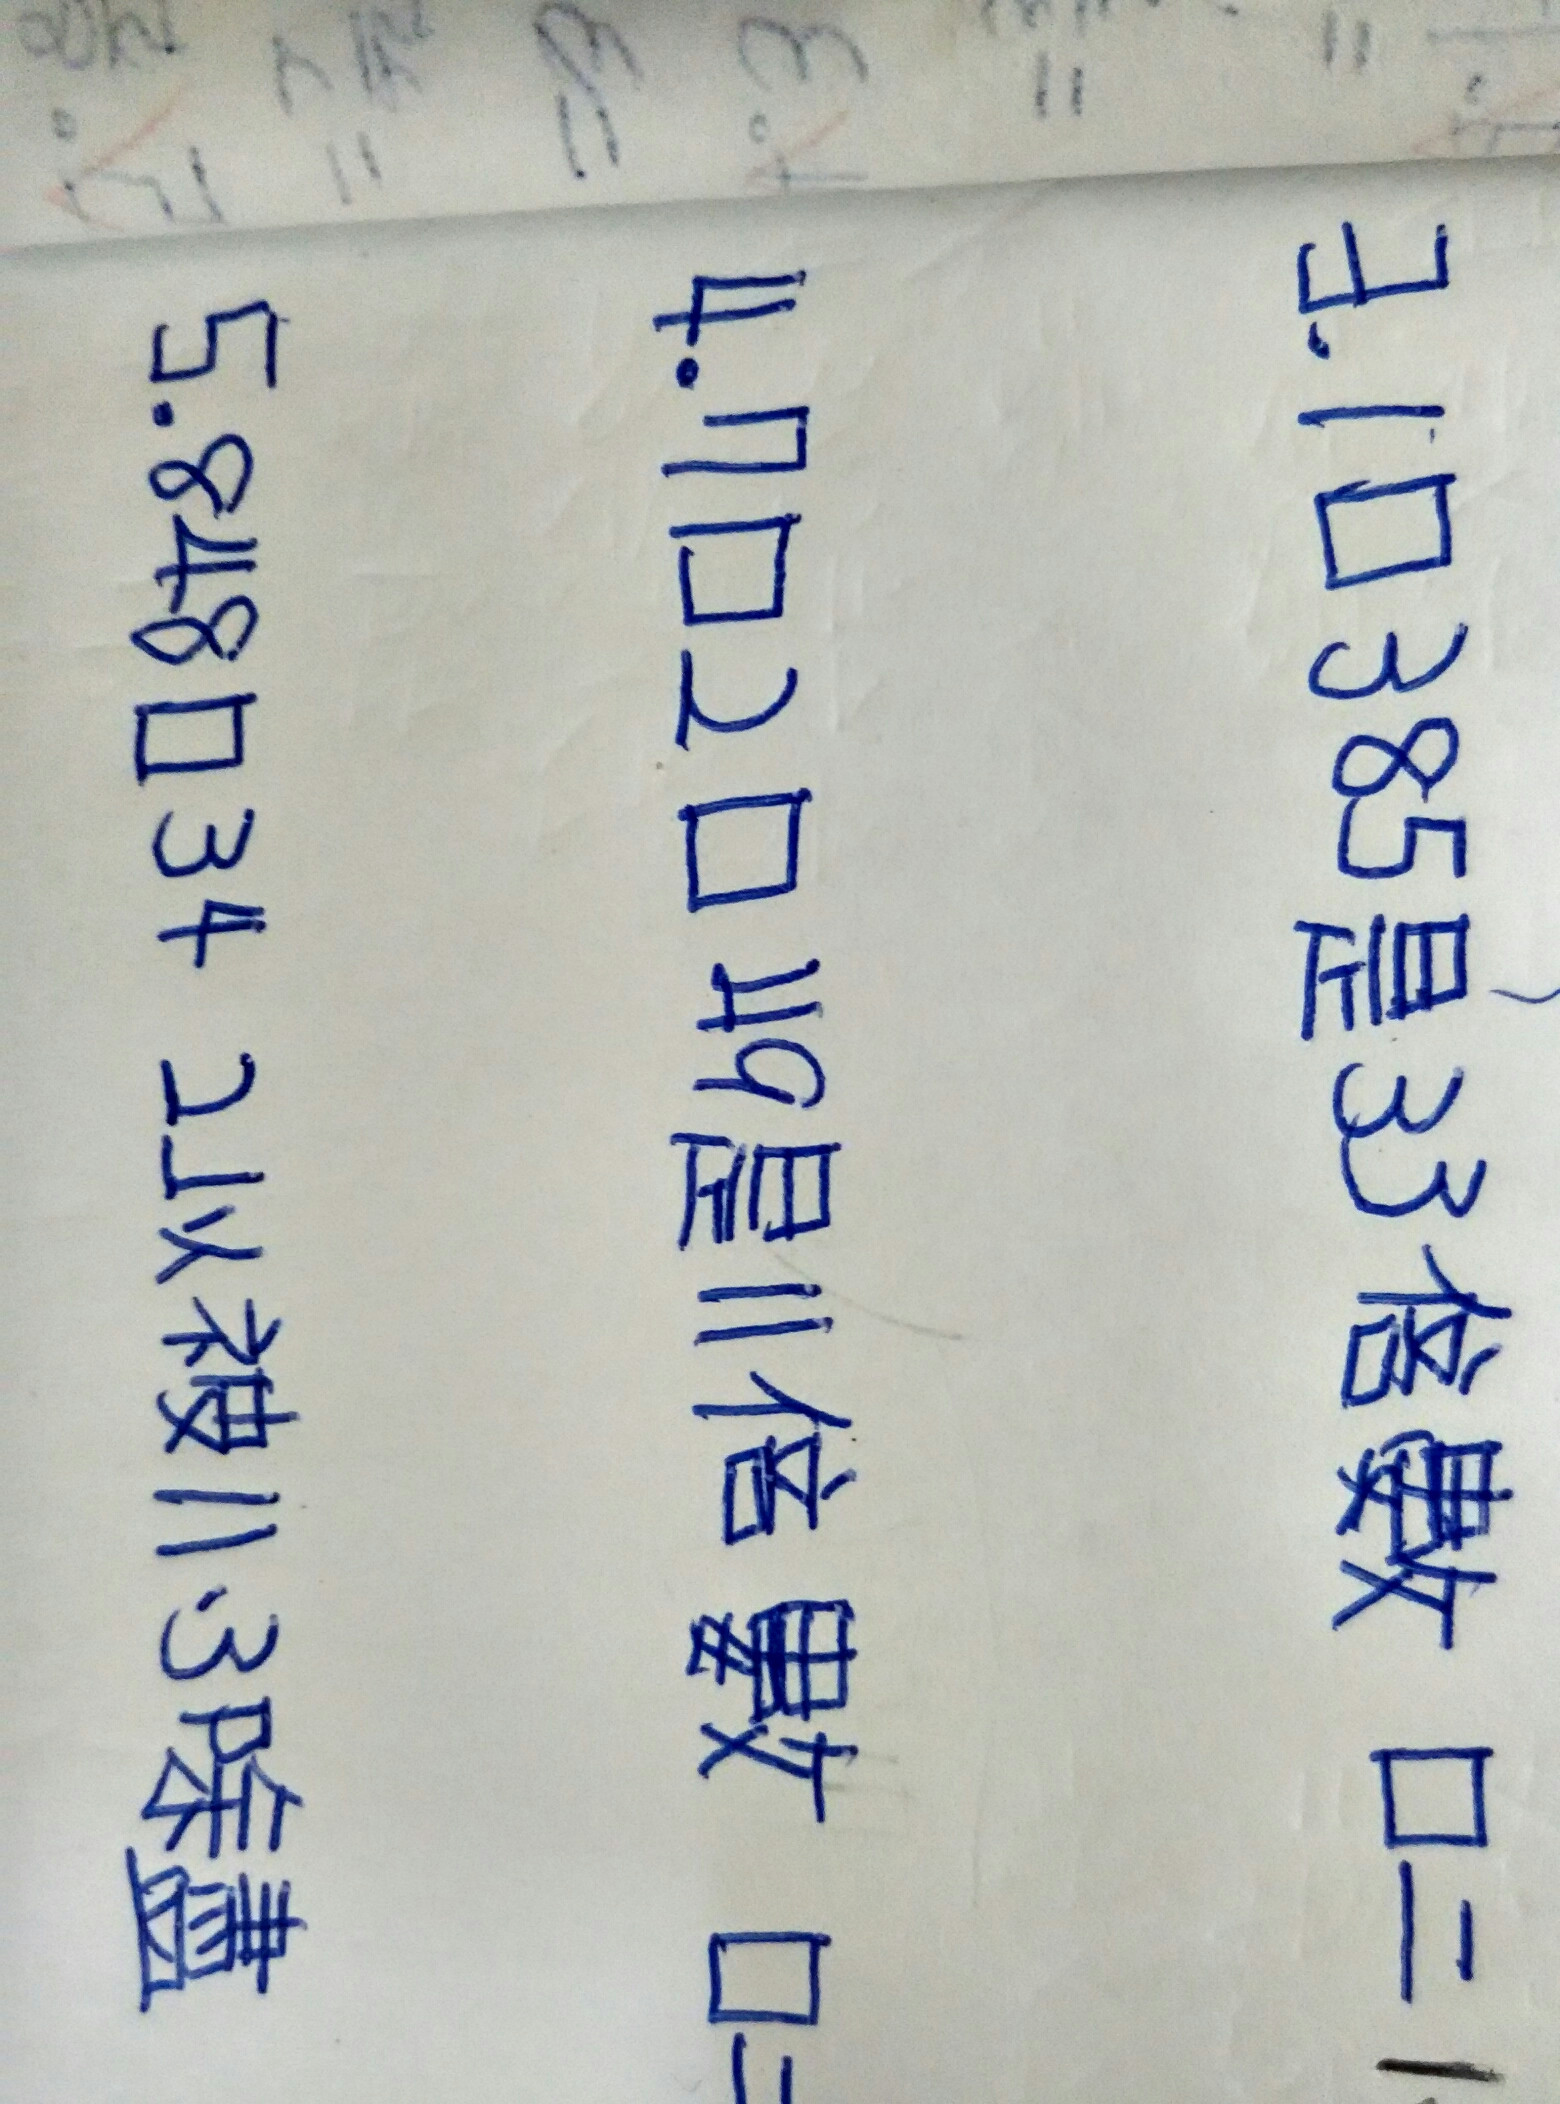 3.1□385是33倍數 □=1
4.71□2□49是11倍數 □=
5.848□34 2以被11.3除盡